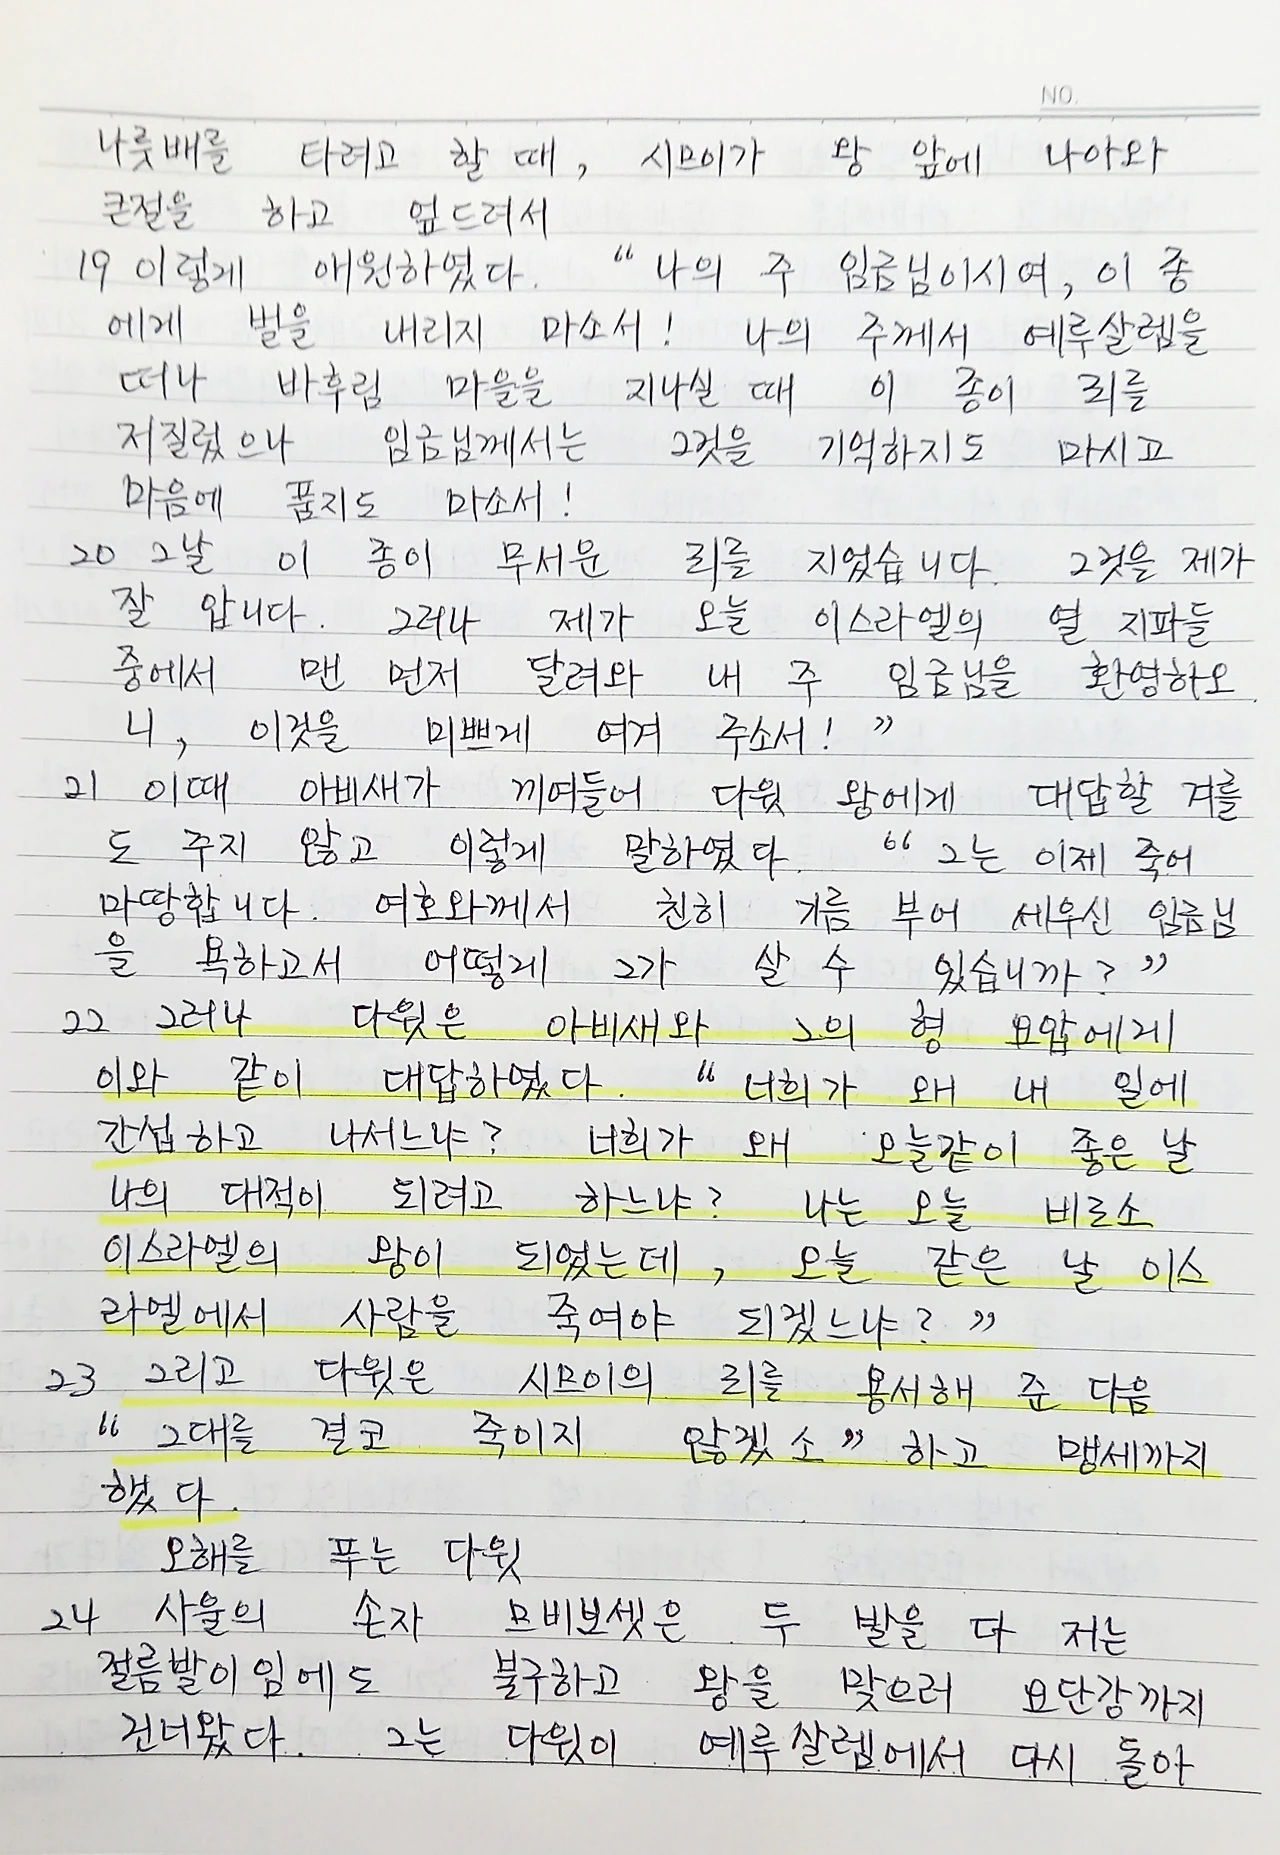 NO.
나룻배를 타려고 할 때, 시므이가 왕 앞에 나아와
큰절을 하고 엎드려서
19 이렇게 애원하였다. “나의 주 임금님이시여, 이 종
에게 벌을 내리지 마소서! 나의 주께서 예루살렘을
떠나 바후림 마을을 지나실 때 이 종이 죄를
저질렀으나 임금님께서는 그것을 기억하지도 마시고
마음에 품지도 마소서!
20 그날 이 종이 무서운 죄를 지었습니다. 그것을 제가
잘 압니다. 그러나 제가 오늘 이스라엘의 열 지파들
중에서 맨 먼저 달려와 내 주 임금님을 환영하오
니, 이것을 미쁘게 여겨 주소서!”
21 이때 아비새가 끼여들어 다윗 왕에게 대답할 겨를
도 주지 않고 이렇게 말하였다. “그는 이제 죽어
마땅합니다. 여호와께서 친히 기름 부어 세우신 임금님
을 욕하고서 어떻게 그가 살 수 있습니까?”
22 그러나 다윗은 아비새와 그의 형 요압에게
이와 같이 대답하였다. “너희가 왜 내 일에
간섭하고 나서느냐? 너희가 왜 오늘같이 좋은 날
나의 대적이 되려고 하느냐? 나는 오늘 비로소
이스라엘의 왕이 되었는데, 오늘 같은 날 이스
라엘에서 사람을 죽여야 되겠느냐?”
23 그리고 다윗은 시므이의 죄를 용서해 준 다음
“그대를 결코 죽이지 않겠소” 하고 맹세까지
했다.
오해를 푸는 다윗
24 사울의 손자 므비보셋은 두 발을 다 저는
절름발이임에도 불구하고 왕을 맞으러 요단강까지
건너왔다. 그는 다윗이 예루살렘에서 다시 돌아